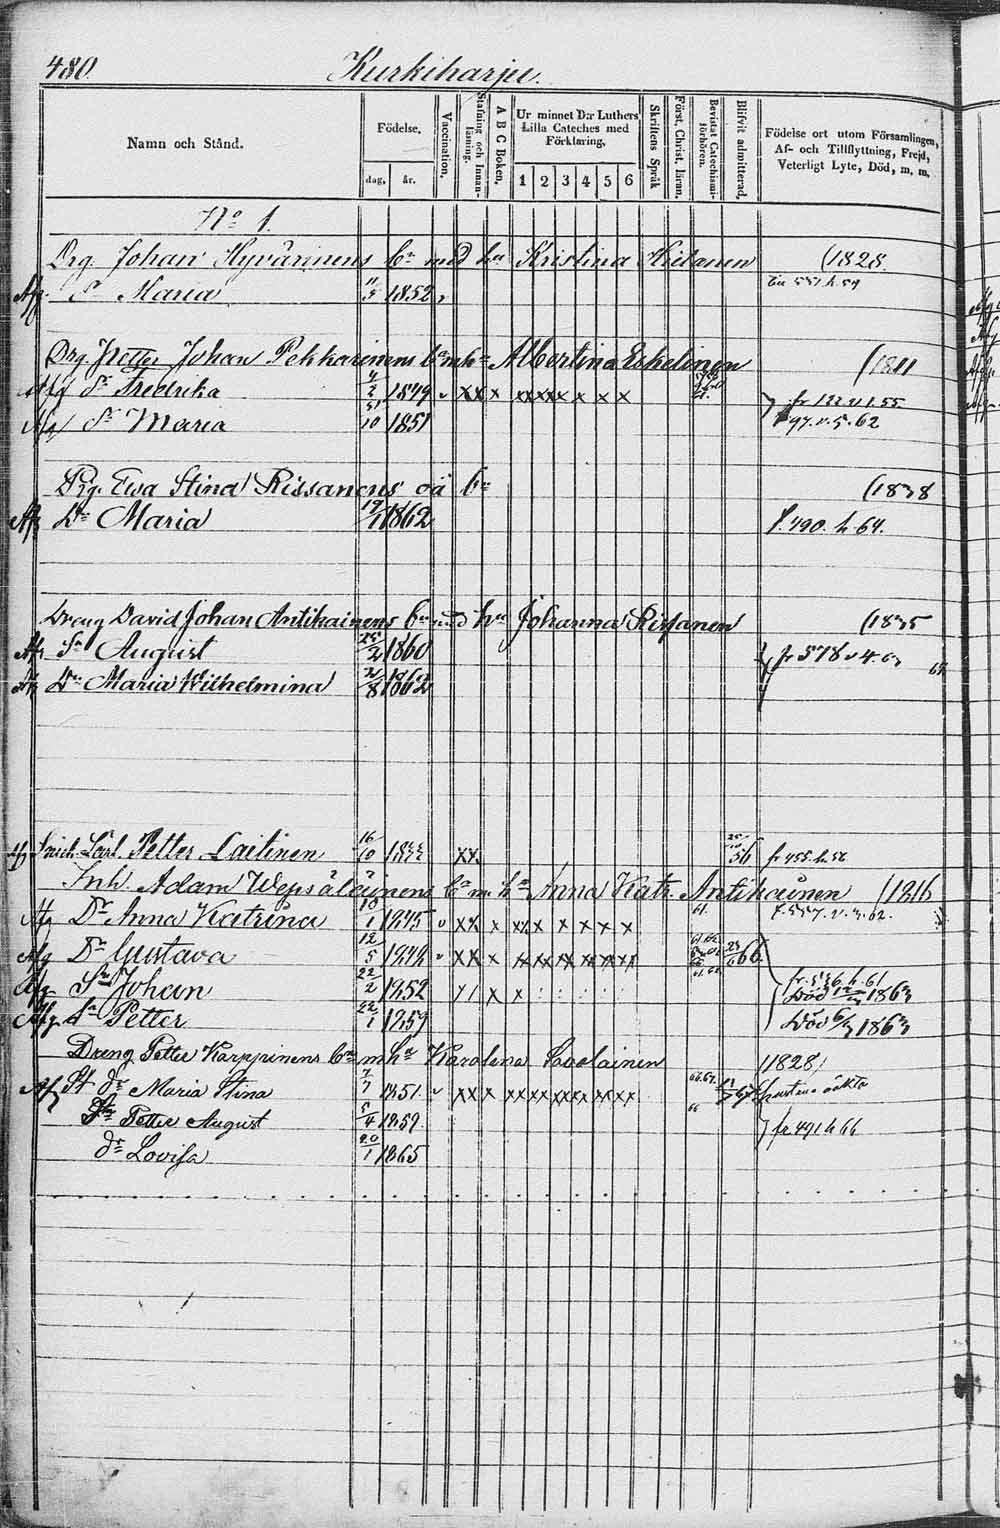 480.
Kurkiharju.
Namn och Stånd.
Födelse.
dag.
år.
Vaccination.
Stafning och Innanläsning.
A B C Boken.
Ur minnet D:r Luthers Lilla Cateches med Förklaring.
1 2 3 4 5 6
Skriftens Språk
Först. Christ. läran.
Bevistat Catechismiförhören.
Blifvit admitterad.
Födelse ort utom Församlingen, Af- och Tillflyttning, Frejd, Veterligt Lyte, Död, m. m.
No 1.
Drg. Johan Hyvärinens bn med hu Kristina Hietanen (1828.
Afg. Sn Maria 11/5 1852,
Drg. Petter Johan Pekkarinens bn m hu Albertina Eskelinen (1811
Afg dr Fredrika 4/2 1849 xx x xx xx x x x x
Afg dr Maria 31/10 1851 fr 122 v 1.55. 97. v. 5. 62
Pig. Ewa Stina Rissanens oä bn (1838
Afg Dr Maria 19/1 1862 f. 490. h 64.
Dreng David Johan Antikainens bn med hu Johanna Rissanen (1835
Afg Sn August 25/2 1860 fr 578 v 4. 63
Afg Dr Maria Wilhelmina 21/8 1862
Afg Smith. Carl Petter Laitinen 16/10 1833 xx. 56 fr 455. h. 56
Inh. Adam Wepsäläinens bn m. hu Anna Katr. Antikainen (1816
Afg Dr Anna Katrina 10/1 1845 xx x xx x x x x x 61. f. 557. v. 3. 62.
Afg Dr Gustava 12/5 1848 xx x xx xx xx xx xx xx 66.
Afg Sn Johan 22/2 1852 x x fr. 536 h. 61
Afg Sn Petter 22/1 1859 Död 6/3 1863
Dreng Petter Karppinens bn m hu Karolina Savolainen (1828)
Afg St dr Maria Stina 7/7 1851. xx x x xx xx xx xx xx xx 66.67.
Sn Petter August 5/4 1859. fr 491 h 66
dr Lovisa 20/1 1865